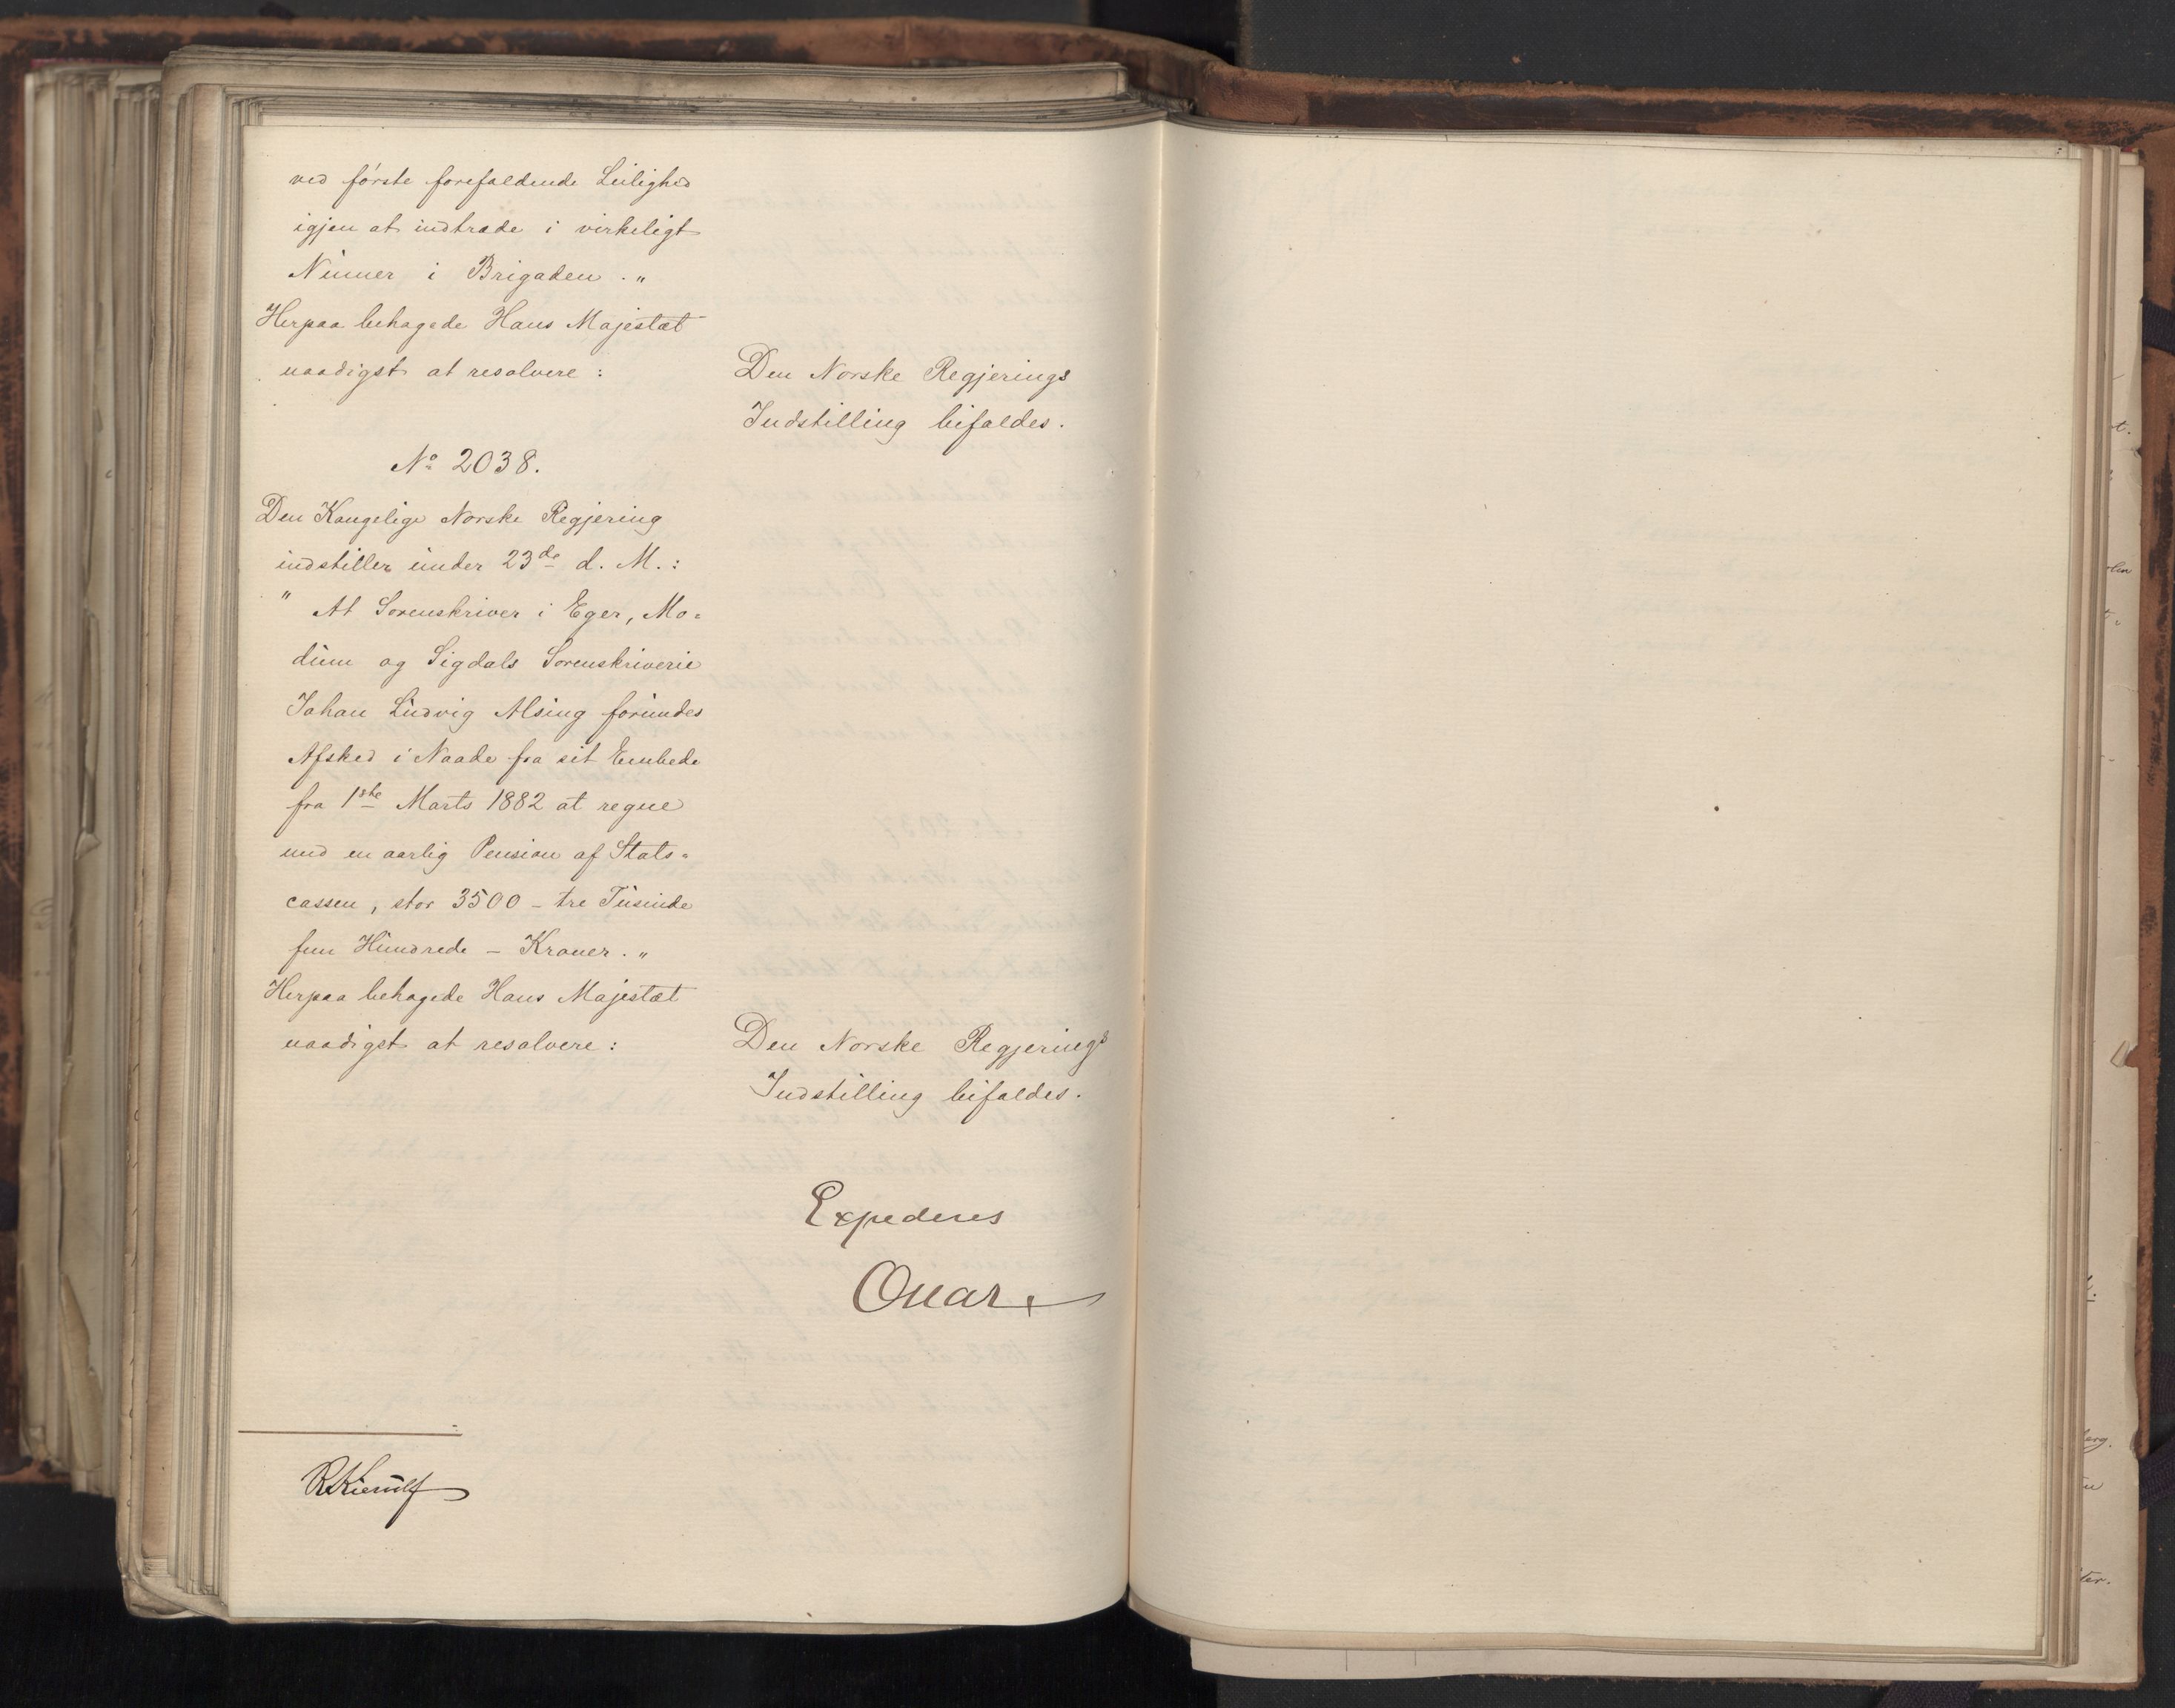 ved første forefaldende Leilighed
igjen at indtræde i virkeligt
Numer i Brigaden."
Herpaa behagede Hans Majestæt
naadigst at resolvere:
Den Norske Regjerings
Indstilling bifaldes.
No 2038.
Den Kongelige Norske Regjering
indstiller under 23de d. M.:
" At Sorenskriver i Eger, Mo=
dum og Sigdals Sorenskriverie
Johan Ludvig Alsing forundes
Afsked i Naade fra sit Embede
fra 1ste Marts 1882 at regne
med en aarlig Pension af Stats=
cassen, stor 3500 - tre Tusinde
fem Hundrede - Kroner."
Herpaa behagede Hans Majestæt
naadigst at resolvere:
Den Norske Regjerings
Indstilling bifaldes.
Expederes
Oscar
RKierulf